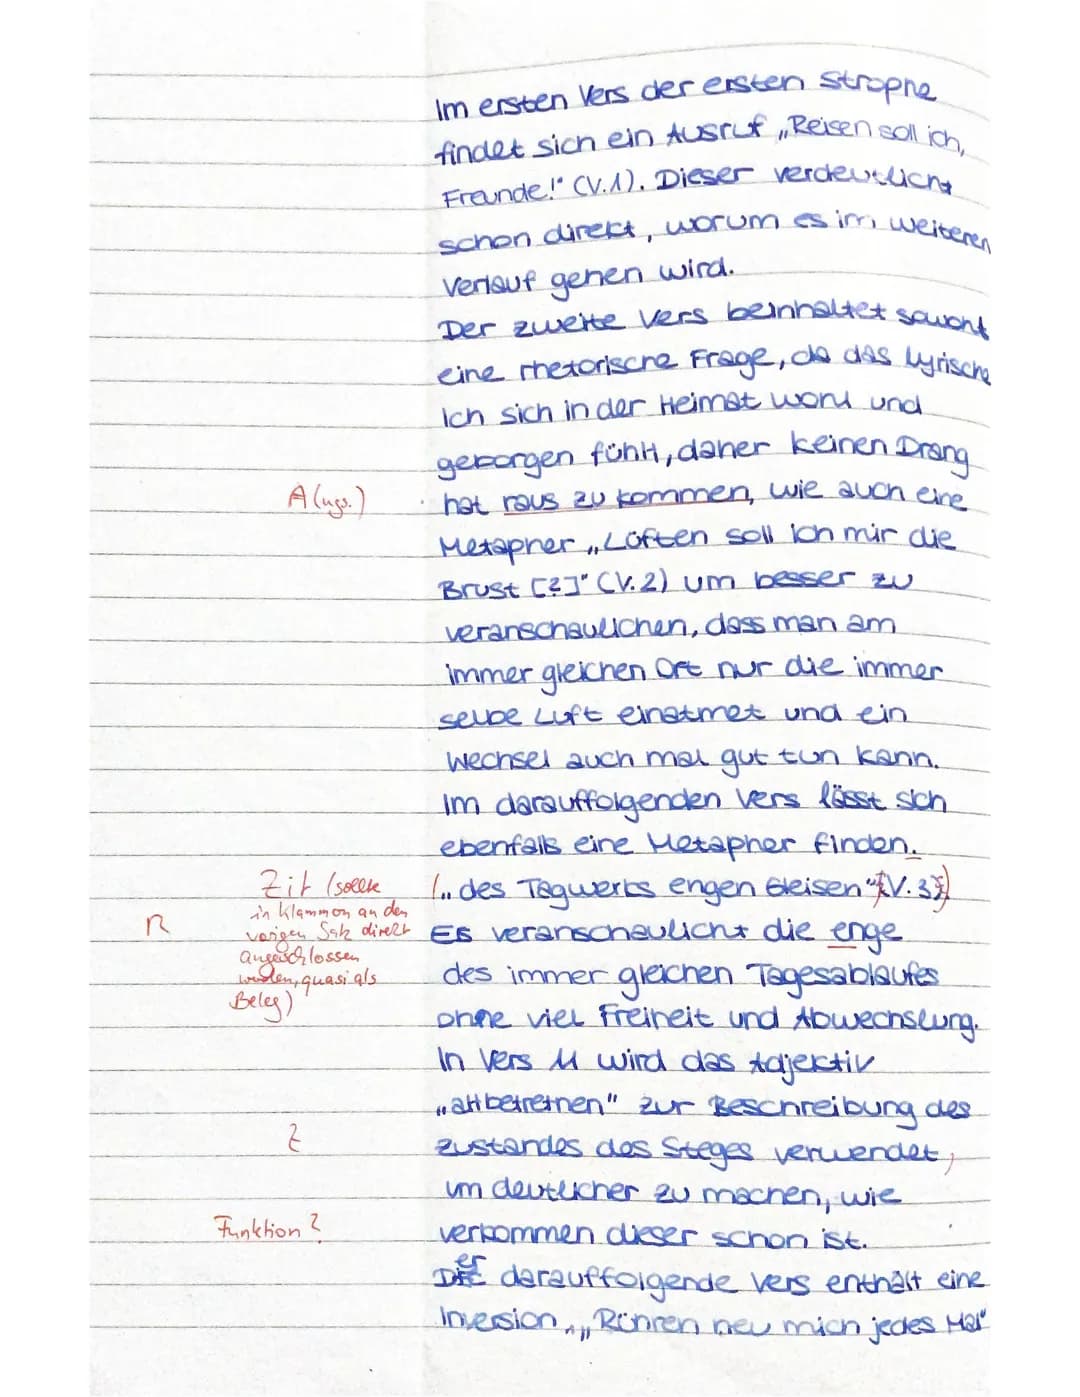 Im ersten Vers der ersten Strophe
findet sich ein Ausruf „Reisen soll ich,
Freunde!" (V.1). Dieser verdeutlicht
schon direkt, worum es im weiteren
Verlauf gehen wird.
Der zweite Vers beinhaltet sowohl
eine rhetorische Frage, da das lyrische
Ich sich in der Heimat wohl und
geborgen fühlt, daher keinen Drang
A (ugs.) hat raus zu kommen, wie auch eine
Metapher „Lüften soll ich mir die
Brust [?]" (V.2) um besser zu
veranschaulichen, dass man am
immer gleichen Ort nur die immer
selbe Luft einatmet und ein
Wechsel auch mal gut tun kann.
Im darauffolgenden Vers lässt sich
ebenfalls eine Metapher finden.
Zit (sollte („ des Tagwerks engen Gleisen" (V.3)
in Klammern an den
R vorigen Satz direkt Es veranschaulicht die enge
angeschlossen
werden, quasi als des immer gleichen Tagesablaufes
Beleg)
ohne viel Freiheit und Abwechslung.
In Vers 11 wird das Adjektiv
„altbetretnen" zur Beschreibung des
Z Zustandes des Steges verwendet,
um deutlicher zu machen, wie
Funktion? verkommen dieser schon ist.
Der darauffolgende Vers enthält eine
Inversion, „Rühren neu mich jedes Mal"